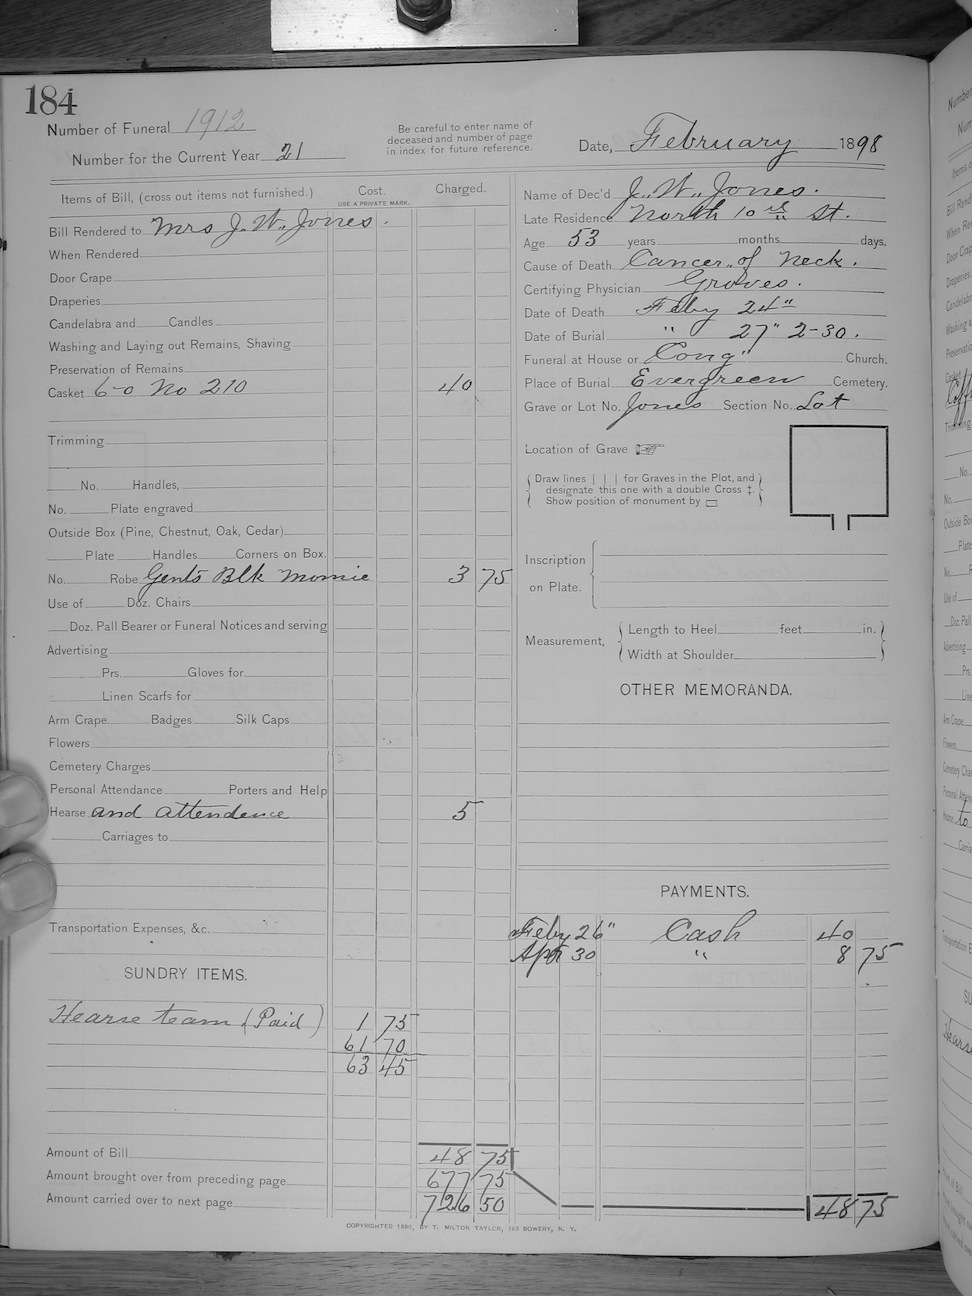 184
Number of Funeral 1912
Number for the Current Year 21
Be careful to enter name of
deceased and number of page
in index for future reference.
Date, February 1898
Items of Bill, (cross out items not furnished.) Cost. Charged.
USE A PRIVATE MARK.
Bill Rendered to Mrs J. W. Jones.
When Rendered
Door Crape
Draperies
Candelabra and Candles
Washing and Laying out Remains, Shaving
Preservation of Remains
Casket 6-0 No 210 40
Trimming
No. Handles,
No. Plate engraved
Outside Box (Pine, Chestnut, Oak, Cedar)
Plate Handles Corners on Box.
No. Robe Gents Blk Momie 3 75
Use of Doz. Chairs
Doz. Pall Bearer or Funeral Notices and serving
Advertising
Prs. Gloves for
Linen Scarfs for
Arm Crape Badges Silk Caps
Flowers
Cemetery Charges
Personal Attendance Porters and Help
Hearse and attendence 5
Carriages to
Transportation Expenses, &c.
SUNDRY ITEMS.
Hearse team (Paid) 1 75
61 70
63 45
Amount of Bill 48 75
Amount brought over from preceding page 677 75
Amount carried over to next page 726 50
Name of Dec'd J. W. Jones.
Late Residence North 10th St.
Age 53 years months days.
Cause of Death Cancer of Neck.
Certifying Physician Groves.
Date of Death Feby 24"
Date of Burial " 27" 2-30.
Funeral at House or Cong" Church.
Place of Burial Evergreen Cemetery.
Grave or Lot No. Jones Section No. Lot
Location of Grave
Draw lines | | | for Graves in the Plot, and
designate this one with a double Cross ‡.
Show position of monument by
Inscription
on Plate.
Measurement, Length to Heel feet in.
Width at Shoulder
OTHER MEMORANDA.
PAYMENTS.
Feby 26" Cash 40
Apr 30 " 8 75
48 75
COPYRIGHTED 1890, BY T. MILTON TAYLOR, 163 BOWERY, N. Y.